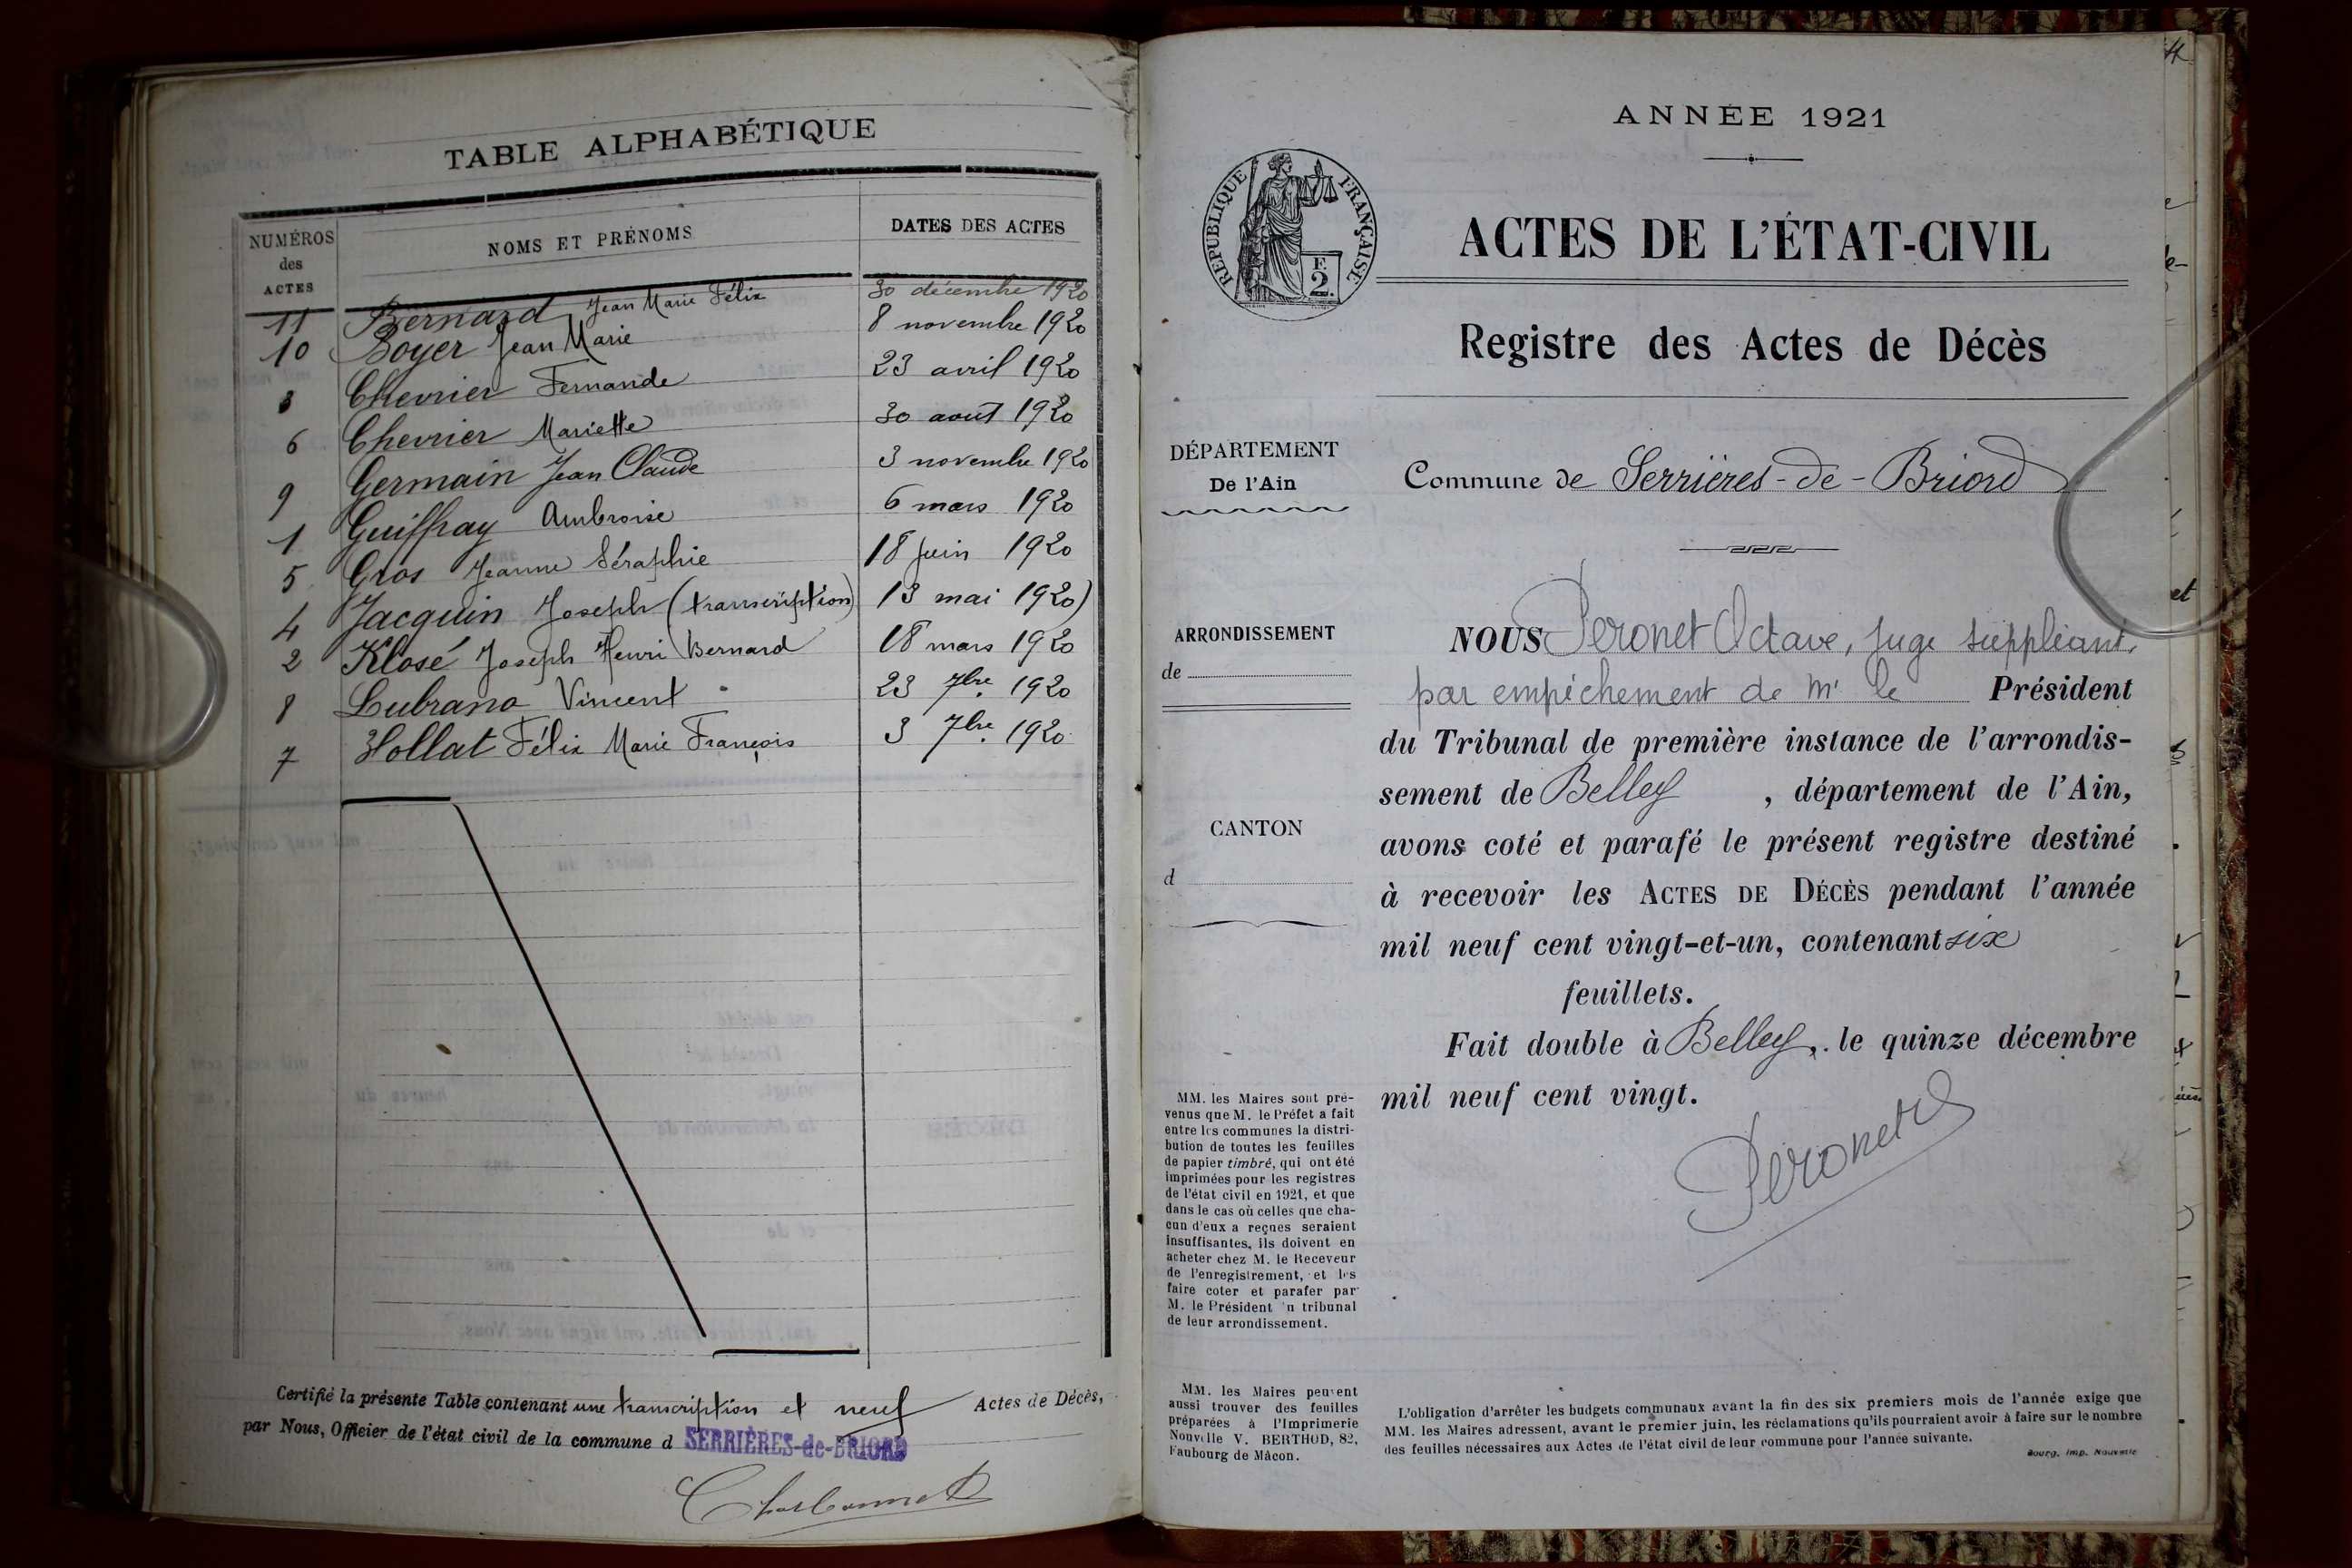 TABLE ALPHABÉTIQUE
NUMÉROS des ACTES
NOMS ET PRÉNOMS
DATES DES ACTES
11 Bernard Jean Marie Félix 30 décembre 1920
10 Boyer Jean Marie 8 novembre 1920
3 Chevrier Fernande 23 avril 1920
6 Chevrier Mariette 30 août 1920
9 Germain Jean Claude 3 novembre 1920
1 Guiffray Ambroise 6 mars 1920
5 Gros Jeanne Séraphie 18 juin 1920
4 Jacquin Joseph (transcription) 13 mai 1920)
2 Klosé Joseph Henri Bernard 18 mars 1920
8 Lubrano Vincent 23 7bre 1920
7 Hollat Félix Marie François 3 7bre 1920
Certifié la présente Table contenant une transcription et neuf Actes de Décès,
par Nous, Officier de l'état civil de la commune d SERRIÈRES-de-BRIORD
ANNÉE 1921
RÉPUBLIQUE FRANÇAISE
F.
2.
ACTES DE L'ÉTAT-CIVIL
Registre des Actes de Décès
DÉPARTEMENT
De l'Ain
Commune de Serrières-de-Briord
ARRONDISSEMENT
de
CANTON
d
NOUS Peronet Octave, juge suppléant,
par empêchement de Mr le Président
du Tribunal de première instance de l'arrondis-
sement de Belley, département de l'Ain,
avons coté et parafé le présent registre destiné
à recevoir les ACTES DE DÉCÈS pendant l'année
mil neuf cent vingt-et-un, contenant six
feuillets.
Fait double à Belley, le quinze décembre
mil neuf cent vingt.
Peronet
MM. les Maires sont pré-
venus que M. le Préfet a fait
entre les communes la distri-
bution de toutes les feuilles
de papier timbré, qui ont été
imprimées pour les registres
de l'état civil en 1921, et que
dans le cas où celles que cha-
cun d'eux a reçues seraient
insuffisantes, ils doivent en
acheter chez M. le Receveur
de l'enregistrement, et les
faire coter et parafer par
M. le Président u tribunal
de leur arrondissement.
MM. les Maires peuvent
aussi trouver des feuilles
préparées à l'Imprimerie
Nouvelle V. BERTHOD, 82,
Faubourg de Mâcon.
L'obligation d'arrêter les budgets communaux avant la fin des six premiers mois de l'année exige que
MM. les Maires adressent, avant le premier juin, les réclamations qu'ils pourraient avoir à faire sur le nombre
des feuilles nécessaires aux Actes de l'état civil de leur commune pour l'année suivante.
Bourg, Imp. Nouvelle
et